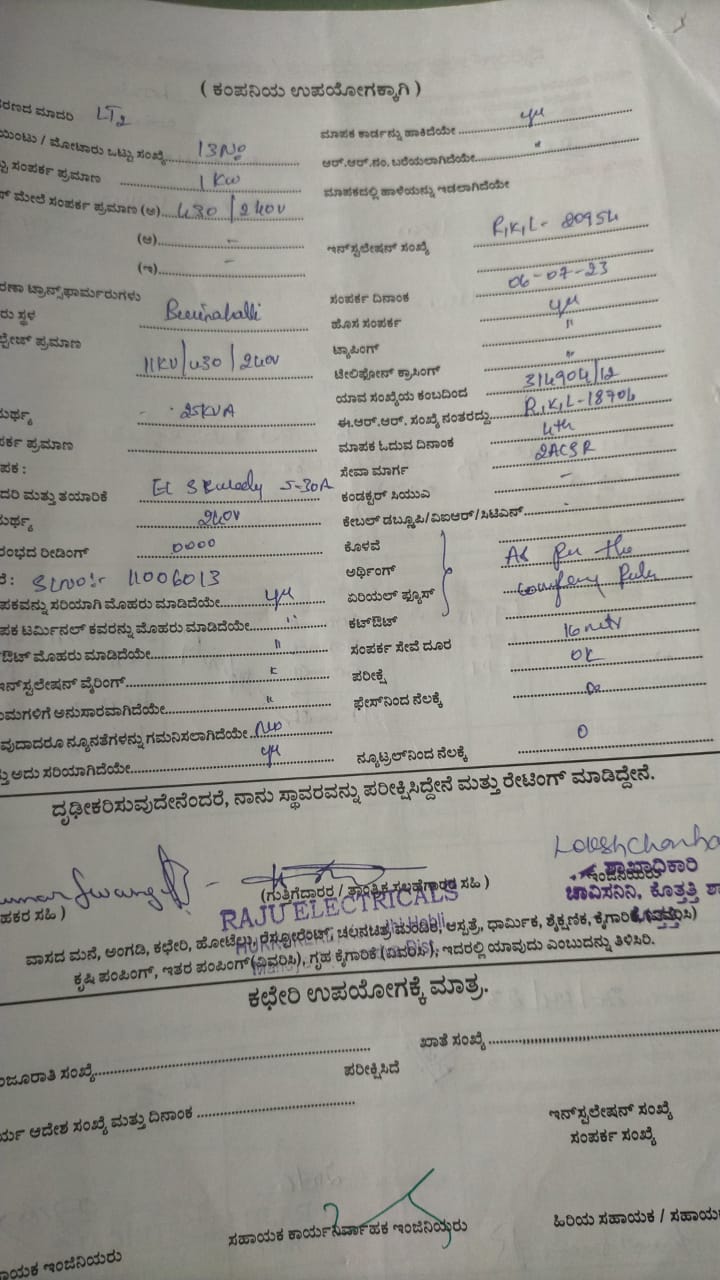 ( ಕಂಪನಿಯ ಉಪಯೋಗಕ್ಕಾಗಿ )
ರಣದ ಮಾದರಿ LT2
ಮಾಪಕ ಕಾರ್ಡನ್ನು ಹಾಕಿದೆಯೇ
ಯಿಂಟು / ಮೋಟಾರು ಒಟ್ಟು ಸಂಖ್ಯೆ 13No
ಆರ್.ಆರ್.ನಂ. ಬರೆಯಲಾಗಿದೆಯೇ "
ಸಂಪರ್ಕ ಪ್ರಮಾಣ 1 KW
ಮಾಪಕದಲ್ಲಿ ಹಾಳೆಯನ್ನು ಇಡಲಾಗಿದೆಯೇ
ಮೇಲೆ ಸಂಪರ್ಕ ಪ್ರಮಾಣ (ಅ) 430 / 240V
(ಆ) –
ಇನ್‌ಸ್ಟಲೇಷನ್ ಸಂಖ್ಯೆ R,K,L- 20954
(ಇ) –
ರಣಾ ಟ್ರಾನ್ಸ್‌ಫಾರ್ಮರುಗಳು
ಸಂಪರ್ಕ ದಿನಾಂಕ 06-07-23
ರು ಸ್ಥಳ
ಹೊಸ ಸಂಪರ್ಕ
ಪ್ರಮಾಣ 11KV/430/240V
ಟ್ಯಾಪಿಂಗ್ "
ಟೆಲಿಫೋನ್ ಕ್ರಾಸಿಂಗ್ "
ಯಾವ ಸಂಖ್ಯೆಯ ಕಂಬದಿಂದ 314904/12
ಮರ್ಥ್ಯ 25KVA
ಈ.ಆರ್.ಆರ್. ಸಂಖ್ಯೆ ನಂತರದ್ದು R,K,L-18704
ರ್ಕ ಪ್ರಮಾಣ
ಮಾಪಕ ಓದುವ ದಿನಾಂಕ 4th
ಪಕ :
ಸೇವಾ ಮಾರ್ಗ 2ACSR
ದರಿ ಮತ್ತು ತಯಾರಿಕೆ 5-30A
ಕಂಡಕ್ಟರ್ ಸಿಯುಎ –
ಮರ್ಥ್ಯ 240V
ಕೇಬಲ್ ಡಬ್ಲ್ಯೂಪಿ/ವಿಐಆರ್/ಸಿಟಿಎಸ್ -
ರಂಭದ ರೀಡಿಂಗ್ 0000
ಕೊಳವೆ
Slno:- 11006013
ಅರ್ಥಿಂಗ್ As per the
ಪಕವನ್ನು ಸರಿಯಾಗಿ ಮೊಹರು ಮಾಡಿದೆಯೇ
ಏರಿಯಲ್ ಫ್ಯೂಸ್ company Rules
ಪಕ ಟರ್ಮಿನಲ್ ಕವರನ್ನು ಮೊಹರು ಮಾಡಿದೆಯೇ "
ಕಟ್‌ಔಟ್
ಔಟ್ ಮೊಹರು ಮಾಡಿದೆಯೇ "
ಸಂಪರ್ಕ ಸೇವೆ ದೂರ 16
ಇನ್‌ಸ್ಟಲೇಷನ್ ವೈರಿಂಗ್ "
ಪರೀಕ್ಷೆ OK
ಮಗಳಿಗೆ ಅನುಸಾರವಾಗಿದೆಯೇ "
ಫೇಸ್‌ನಿಂದ ನೆಲಕ್ಕೆ
ವುದಾದರೂ ನ್ಯೂನತೆಗಳನ್ನು ಗಮನಿಸಲಾಗಿದೆಯೇ
ತ್ತು ಅದು ಸರಿಯಾಗಿದೆಯೇ
ನ್ಯೂಟ್ರಲ್‌ನಿಂದ ನೆಲಕ್ಕೆ 0
ದೃಢೀಕರಿಸುವುದೇನೆಂದರೆ, ನಾನು ಸ್ಥಾವರವನ್ನು ಪರೀಕ್ಷಿಸಿದ್ದೇನೆ ಮತ್ತು ರೇಟಿಂಗ್ ಮಾಡಿದ್ದೇನೆ.
ಹಕರ ಸಹಿ )
(ಗುತ್ತಿಗೆದಾರರ / ತಾಂತ್ರಿಕ ಸಲಹೆಗಾರರ ಸಹಿ )
ಇಂಜಿನಿಯರು
ಶಾಖಾಧಿಕಾರಿ
RAJU ELECTRICALS
ಚಾವಿಸನಿನಿ, ಕೊತ್ತತ್ತಿ ಶಾ
ವಾಸದ ಮನೆ, ಅಂಗಡಿ, ಕಛೇರಿ, ಹೋಟೆಲು, ರೆಸ್ಟೋರೆಂಟ್, ಚಲನಚಿತ್ರ ಮಂದಿರ, ಆಸ್ಪತ್ರೆ, ಧಾರ್ಮಿಕ, ಶೈಕ್ಷಣಿಕ, ಕೈಗಾರಿಕೆ (ವಿವರಿಸಿ)
ಕೃಷಿ ಪಂಪಿಂಗ್, ಇತರ ಪಂಪಿಂಗ್ (ವಿವರಿಸಿ), ಗೃಹ ಕೈಗಾರಿಕೆ (ವಿವರಿಸಿ), ಇದರಲ್ಲಿ ಯಾವುದು ಎಂಬುದನ್ನು ತಿಳಿಸಿರಿ.
ಕಛೇರಿ ಉಪಯೋಗಕ್ಕೆ ಮಾತ್ರ.
ಜೂರಾತಿ ಸಂಖ್ಯೆ
ಖಾತೆ ಸಂಖ್ಯೆ
ಪರೀಕ್ಷಿಸಿದೆ
ರ್ಯ ಆದೇಶ ಸಂಖ್ಯೆ ಮತ್ತು ದಿನಾಂಕ
ಇನ್‌ಸ್ಪಲೇಷನ್ ಸಂಖ್ಯೆ
ಸಂಪರ್ಕ ಸಂಖ್ಯೆ
ಾಯಕ ಇಂಜಿನಿಯರು
ಸಹಾಯಕ ಕಾರ್ಯನಿರ್ವಾಹಕ ಇಂಜಿನಿಯರು
ಹಿರಿಯ ಸಹಾಯಕ / ಸಹಾಯ